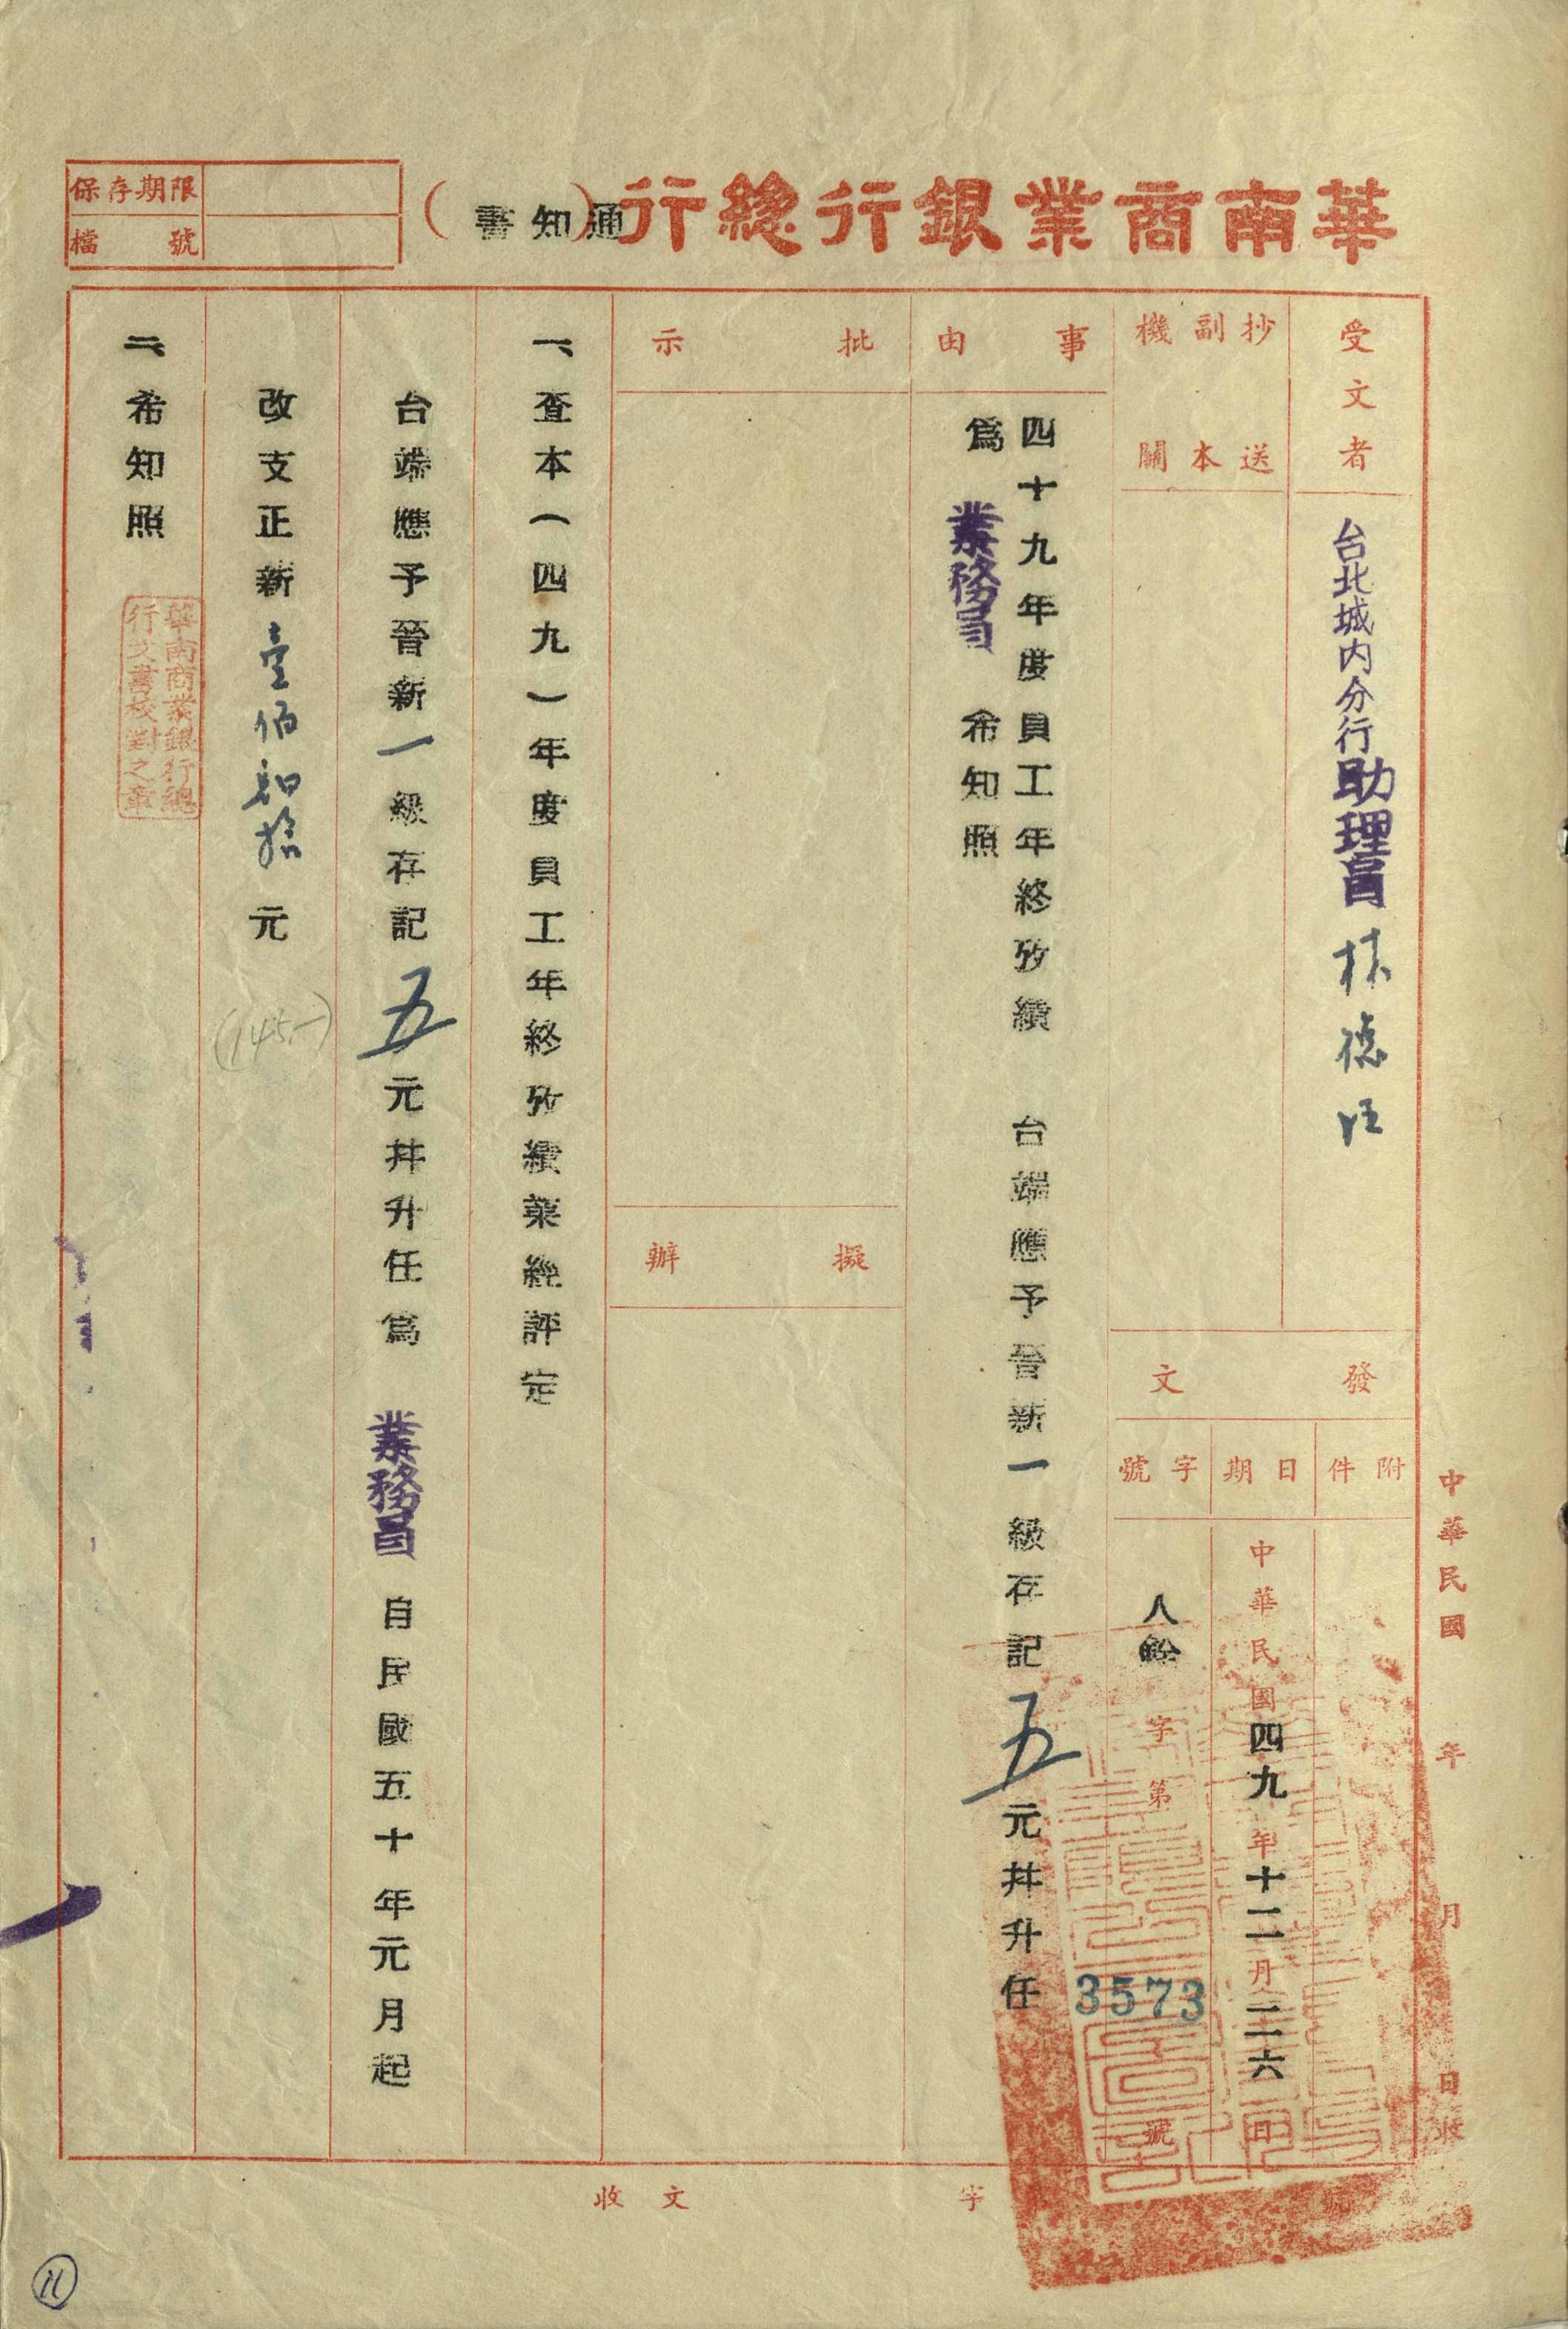 華南商業銀行總行（通知書）
保存期限
檔號
受文者
台北城內分行助理員 林德旺
抄送副本機關
發文
附件
日期
字號
中華民國四九年十二月二六日
人 字第3573號
事由
四十九年度員工年終攷績 台端應予晉新一級存記五元并升任
為 業務員 希知照
批示
擬辦
一、查本（四九）年度員工年終攷績業經評定
台端應予晉新一級存記五元并升任為 業務員 自民國五十年元月起
改支正新壹佰 拾元
(145.-)
二、希知照
華南商業銀行總
行文書校對之章
中華民國 年 月 日收
收文 字 號
11